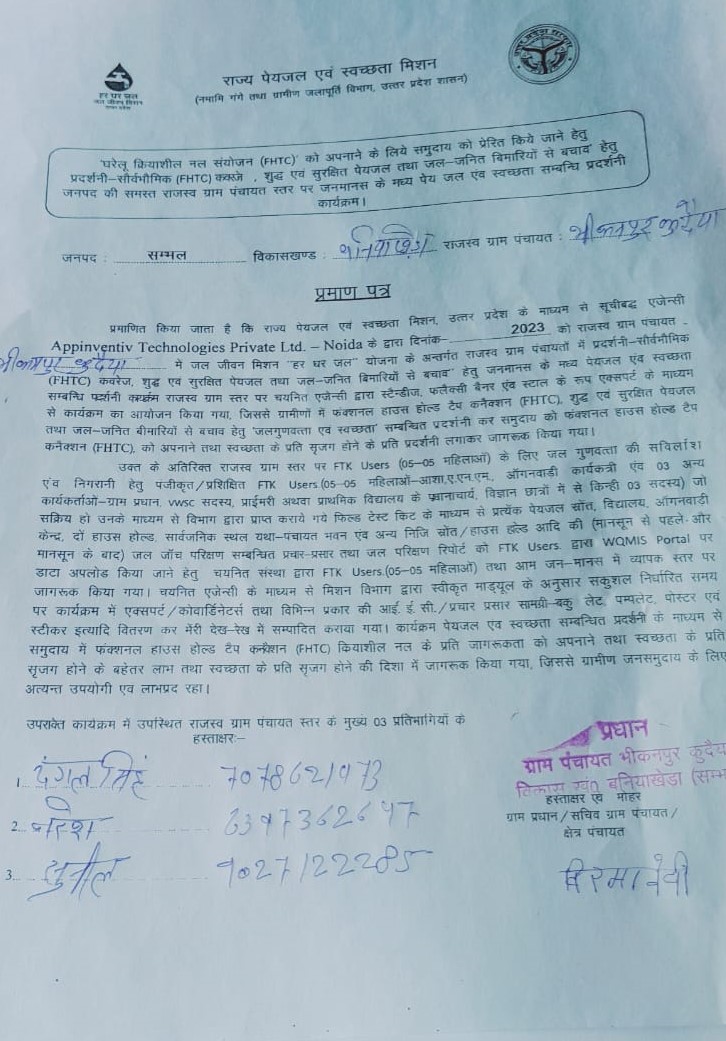 हर घर जल
जल जीवन मिशन
उत्तर प्रदेश
राज्य पेयजल एवं स्वच्छता मिशन
(नमामि गंगे तथा ग्रामीण जलापूर्ति विभाग, उत्तर प्रदेश शासन)
'घरेलू क्रियाशील नल संयोजन (FHTC)' को अपनाने के लिये समुदाय को प्रेरित किये जाने हेतु
प्रदर्शनी–सार्वभौमिक (FHTC) कवरेज , शुद्ध एवं सुरक्षित पेयजल तथा जल–जनित बिमारियों से बचाव हेतु
जनपद की समस्त राजस्व ग्राम पंचायत स्तर पर जनमानस के मध्य पेय जल एंव स्वच्छता सम्बन्धि प्रदर्शनी
कार्यक्रम।
जनपद : सम्भल विकासखण्ड : बनियाखेड़ा राजस्व ग्राम पंचायत : भीकनपुर कुदैया
प्रमाण पत्र
प्रमाणित किया जाता है कि राज्य पेयजल एवं स्वच्छता मिशन, उत्तर प्रदेश के माध्यम से सूचिबद्ध एजेन्सी
Appinventiv Technologies Private Ltd. – Noida के द्वारा दिनांक- 2023 को राजस्व ग्राम पंचायत -
भीकनपुर कुदैया में जल जीवन मिशन "हर घर जल" योजना के अन्तर्गत राजस्व ग्राम पंचायतों में प्रदर्शनी–सौर्वभौमिक
(FHTC) कवरेज, शुद्ध एवं सुरक्षित पेयजल तथा जल–जनित बिमारियों से बचाव" हेतु जनमानस के मध्य पेयजल एंव स्वच्छता
सम्बन्धि प्रर्दशनी कार्यक्रम राजस्व ग्राम स्तर पर चयनित एजेन्सी द्वारा स्टैन्डीज, फलैक्सी बैनर एंव स्टाल के रूप एक्सपर्ट के माध्यम
से कार्यक्रम का आयोजन किया गया, जिससे ग्रामीणों में फंक्शनल हाउस होल्ड टैप कनैक्शन (FHTC), शुद्ध एवं सुरक्षित पेयजल
तथा जल–जनित बीमारियों से बचाव हेतु 'जलगुणवत्ता एवं स्वच्छता' सम्बन्धित प्रदर्शनी कर समुदाय को फंक्शनल हाउस होल्ड टैप
कनैक्शन (FHTC), को अपनाने तथा स्वच्छता के प्रति सृजग होने के प्रति प्रदर्शनी लगाकर जागरूक किया गया।
उक्त के अतिरिक्त राजस्व ग्राम स्तर पर FTK Users (05–05 महिलाओं) के लिए जल गुणवत्ता की सर्विलांश
एंव निगरानी हेतु पंजीकृत/प्रशिक्षित FTK Users.(05–05 महिलाओं–आशा,ए.एन.एम., ऑगनवाड़ी कार्यकत्री एंव 03 अन्य
कार्यकर्ताओं–ग्राम प्रधान, vwsc सदस्य, प्राईमरी अथवा प्राथमिक विद्यालय के प्रधानाचार्य, विज्ञान छात्रों में से किन्ही 03 सदस्य) जो
सक्रिय हो उनके माध्यम से विभाग द्वारा प्राप्त कराये गये फिल्ड टेस्ट किट के माध्यम से प्रत्येक पेयजल स्रोत, विद्यालय, ऑगनवाड़ी
केन्द्र, दों हाउस होल्ड, सार्वजनिक स्थल यथा–पंचायत भवन एंव अन्य निजि स्रोत/हाउस होल्ड आदि की (मानसून से पहले और
मानसून के बाद) जल जाँच परिक्षण सम्बन्धित प्रचार–प्रसार तथा जल परिक्षण रिपोर्ट को FTK Users. द्वारा WQMIS Portal पर
डाटा अपलोड किया जाने हेतु चयनित संस्था द्वारा FTK Users.(05–05 महिलाओं) तथा आम जन–मानस में व्यापक स्तर पर
जागरूक किया गया। चयनित एजेन्सी के माध्यम से मिशन विभाग द्वारा स्वीकृत माड्यूल के अनुसार सकुशल निर्धारित समय
पर कार्यक्रम में एक्सपर्ट/कोवार्डिनेटर्स तथा विभिन्न प्रकार की आई. ई. सी./प्रचार प्रसार सामग्री–बकु लेट, पम्पलेट, पोस्टर एवं
स्टीकर इत्यादि वितरण कर मेरी देख–रेख में सम्पादित कराया गया। कार्यक्रम पेयजल एंव स्वच्छता सम्बन्धित प्रदर्शनी के माध्यम से
समुदाय में फंक्शनल हाउस होल्ड टैप कनैक्शन (FHTC) कियाशील नल के प्रति जागरूकता को अपनाने तथा स्वच्छता के प्रति
सृजग होने के बेहतर लाभ तथा स्वच्छता के प्रति सृजग होने की दिशा में जागरूक किया गया, जिससे ग्रामीण जनसमुदाय के लिए
अत्यन्त उपयोगी एवं लाभप्रद रहा।
उपरोक्त कार्यक्रम में उपस्थित राजस्व ग्राम पंचायत स्तर के मुख्य 03 प्रतिभागियों के
हस्ताक्षरः–
1. दंगल सिंह 7078621973
2. नरेश 6397362647
3. सुनील 9027122285
प्रधान
ग्राम पंचायत भीकनपुर कुदैया
विकास खण्ड बनियाखेडा (सम्भ
हस्ताक्षर एंव मोहर
ग्राम प्रधान/सचिव ग्राम पंचायत/
क्षेत्र पंचायत
बिरमा देवी